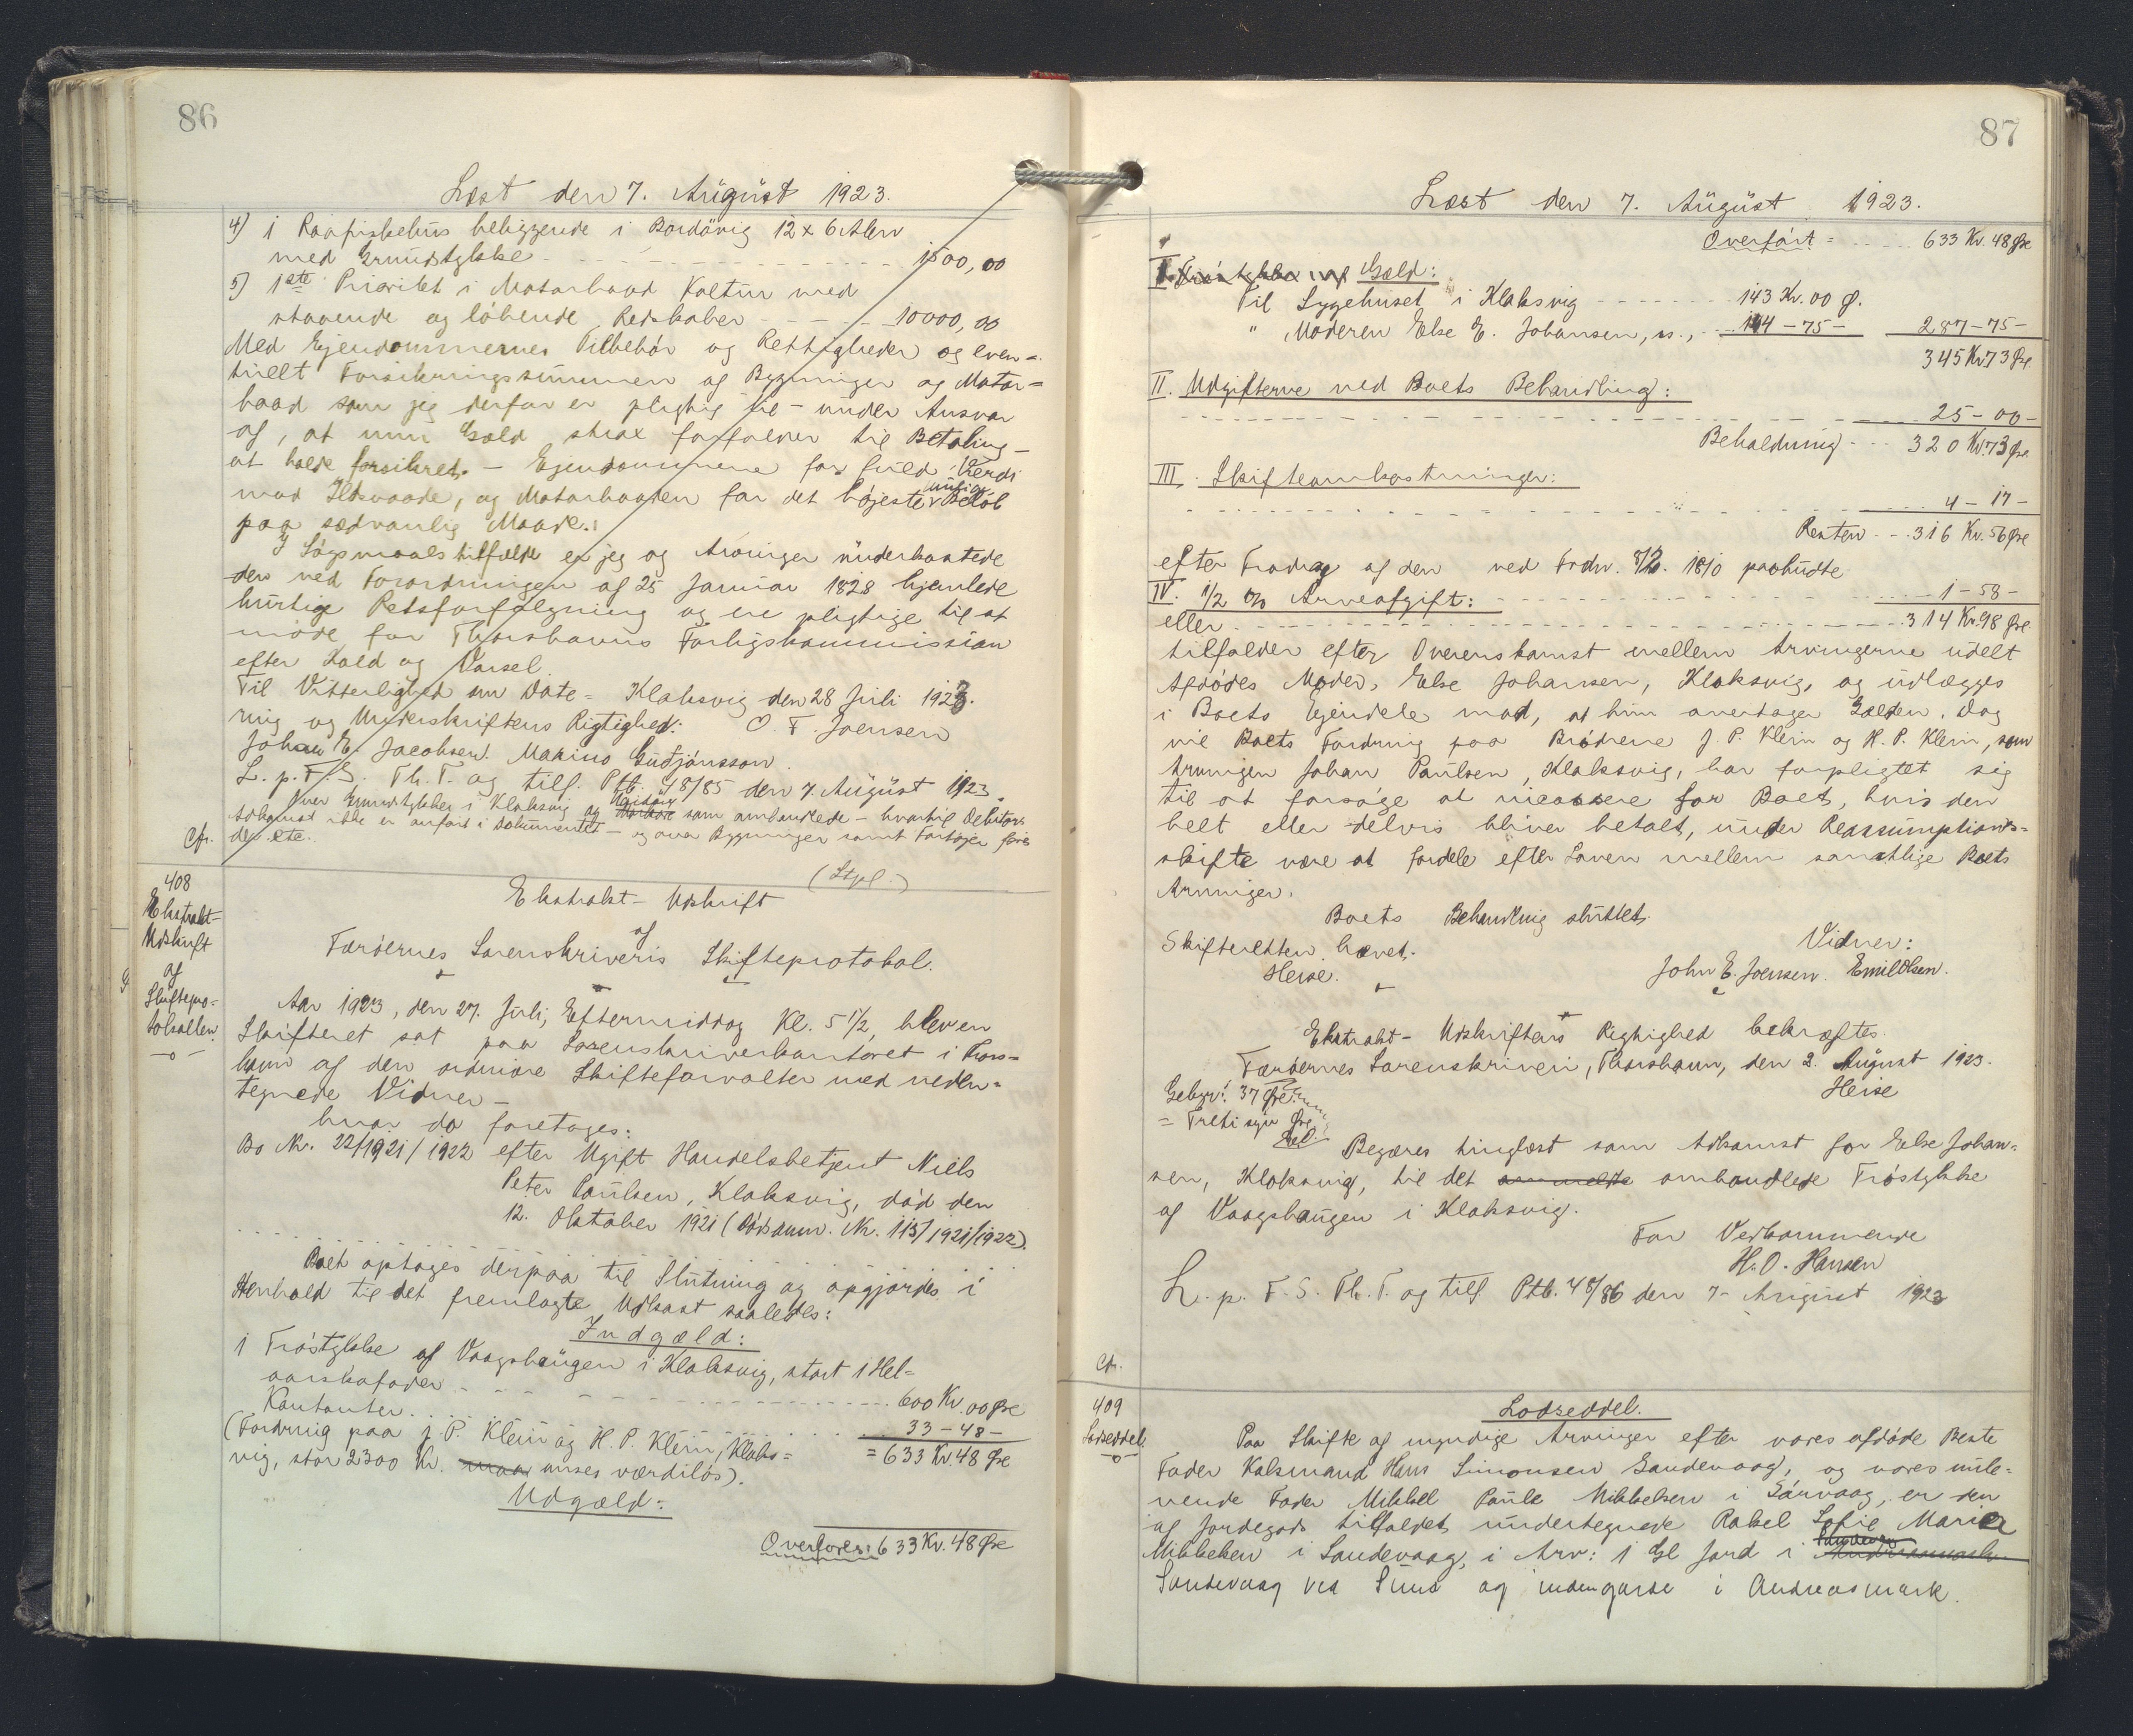 86
Læst den 7. August 1923.
4) 1 Raafiskehus beliggende i Bordövig 12 x 6 Alen
med Grundstykke 1500,00
5) 1ste Prioritet i Motorbaad Kaltur med
staaende og löbende Redskaber 10000,00
Med Ejendommernes Tilbehör og Rettigheder og even=
tuelt Forsikringssummen af Bygninger og Motor=
baad som jeg derfor er pligtig til - under Ansvar
af, at min Gæld strax forfalder til Betaling -
at holde forsikret. - Ejendommene for fuld Værdi
mod Ildsvaade, og Motorbaaden for det højeste mulige Belöb
paa sædvanlig Maade.
I Sögsmaalstilfælde er jeg og Arvinger underkastede
den ved Forordningen af 25 Januar 1828 hjemlede
hurtige Retsforfölgning og ere pligtige til at
möde for Thorshavns Forligskommission
efter Kald og Varsel.
Til Vitterlighed om Date= Klaksvig den 28 Juli 1923.
ring og Underskriftens Rigtighed: O. F. Joensen
Johan E. Jacobsen. Marino Gudjónsson.
L. p. F. S. Th. T. og tilf. Ptb. 48/85 den 7. August 1923.
over Grundstykker i Klaksvig og Bordövig som ombandlede - hvortil Debitors
Adkomst ikke er anfört i Dokumentet - og over Bygninger samt Fartøjer föres
Cfr. der ete.
(Stpl.)
408
Ekstrakt-
Udskrift
af
Skiftepro=
tokollen.
Ekstrakt- Udskrift
af
Færöernes Sorenskriveris Skifteprotokol.
Aar 1923, den 27. Juli, Eftermiddag Kl. 5 1/2, blev en
Skifteret sat paa Sorenskriverkontoret i Thors=
havn af den ordinære Skifteforvalter med neden=
tegnede Vidner -
hvor da foretages:
Bo Nr. 22/1921/1922 efter Ugift Handelsbetjent Niels
Peter Paulsen, Klaksvig, död den
12. Oktober 1921 (Dödsanm. Nr. 113/1921/1922).
Boet optages derpaa til Slutning og opgjordes i
Henhold til det fremlagte Udkast saaledes:
Indgæld:
1 Tröstykke af Vaagshaugen i Klaksvig, stort 1 Hel=
aarskofoder 600 Kr. 00 Øre
Kontanter 33-48-
(Fordring paa J. P. Klein og H. P. Klein, Klaks= = 633 Kr. 48 Øre
vig, stor 2300 Kr. maa anses værdilös).
Udgæld:
Overföres: 633 Kr. 48 Øre
87
Læst den 7. August 1923.
Overfört = 633 Kr. 48 Øre
I. Gæld:
Til Sygehuset i Klaksvig 143 Kr. 00 Ø.
" Moderen Else E. Johansen, ss., 144-75- 287-75-
345 Kr. 73 Øre
II. Udgifterne ved Boets Behandling:
25-00-
Beholdning 320 Kr. 73 Øre
III. Skifteomkostninger:
4-17-
Resten 316 Kr. 56 Øre
efter Fradrag af den ved Frdn. 8/2. 1810 paabudte
IV. 1/2 % Arveafgift: 1-58-
eller 314 Kr. 98 Øre
tilfalder efter Overenskomst mellem Arvingerne udelt
Afdödes Moder, Else Johansen, Klaksvig, og udlægges
i Boets Ejendele mod, at hun overtager Gælden. Dog
vil Boets Fordring paa Brödrene J. P. Klein og H. P. Klein, som
Arvingen Johan Paulsen, Klaksvig, har forpligtet sig
til at forsöge at incassere for Boet, hvis den
helt eller delvis bliver betalt, under Reassumptions=
skifte være at fordele efter Loven mellem samtlige Boets
Arvinger.
Boets Behandling sluttet.
Skifteretten hævet. Vidner:
Heise. John E. Joensen. Emil Olsen.
Ekstrakt- Udskriftens Rigtighed bekræftes.
Færöernes Sorenskriveri, Thorshavn, den 2. August 1923.
Gebyr: 37 Øre Heise
= Treti syv Øre
Begæres tinglæst som Adkomst for Else Johan=
sen, Klaksvig, til det ommeldte ombandlede Tröstykke
af Vaagshaugen i Klaksvig.
For Vedkommende
H. O. Hansen
L. p. F. S. Th. T. og tilf Ptb. 48/86 den 7- August 1923
Cfr.
409
Lodseddel
Lodseddel.
Paa Skifte af myndige Arvinger efter vores afdöde Beste
Fader Kalsmand Hans Simonsen Sandevaag, og vores nule=
vende Fader Mikkel Paule Mikkelsen i Sörvaag, er den
af Jordegods tilfaldet undertegnede Rakel Sofie Marie
Mikkelsen i Sandevaag, i Arv: 1 Gl Jord i
Sandevaag ved Sund og indengarde i Andreasmark.